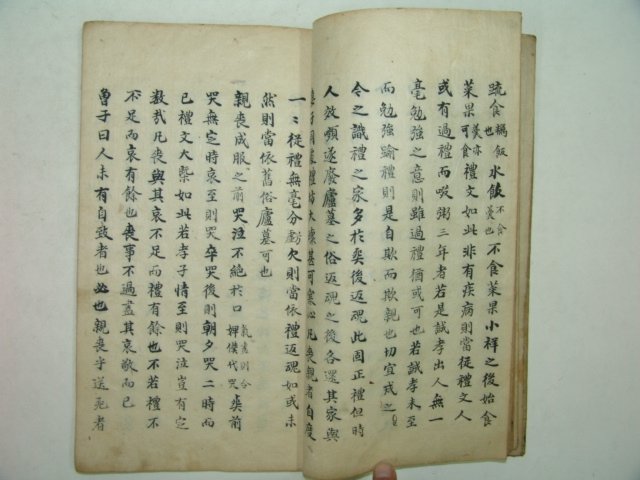 疏食糲飯也水飮不食羹也不食菜果小祥之後始食
菜果羹亦可食禮文如此非有疾病則當從禮文人
或有過禮而啜粥三年者若是誠孝出人無一
毫勉強之意則雖過禮猶或可也若誠孝未至
而勉強踰禮則是自欺而欺親也切宜戒之
今之識禮之家多於葬後返魂此固正禮但時
人效顰遂廢廬墓之俗返魂之後各還其家與
妻子同處禮坊大壞甚可寒心凡喪親者自度
一〻從禮無毫分虧欠則當依禮返魂如或未
然則當依舊俗廬墓可也
親喪成服之前哭泣不絕於口氣盡則令婢僕代哭葬前
哭無定時哀至則哭卒哭後則朝夕哭二時而
已禮文大槩如此若孝子情至則哭泣豈有定
數哉凡喪與其哀不足而禮有餘也不若禮不
不足而哀有餘也喪事不過盡其哀敬而已
曾子曰人未有自致者也必也親喪乎送死者